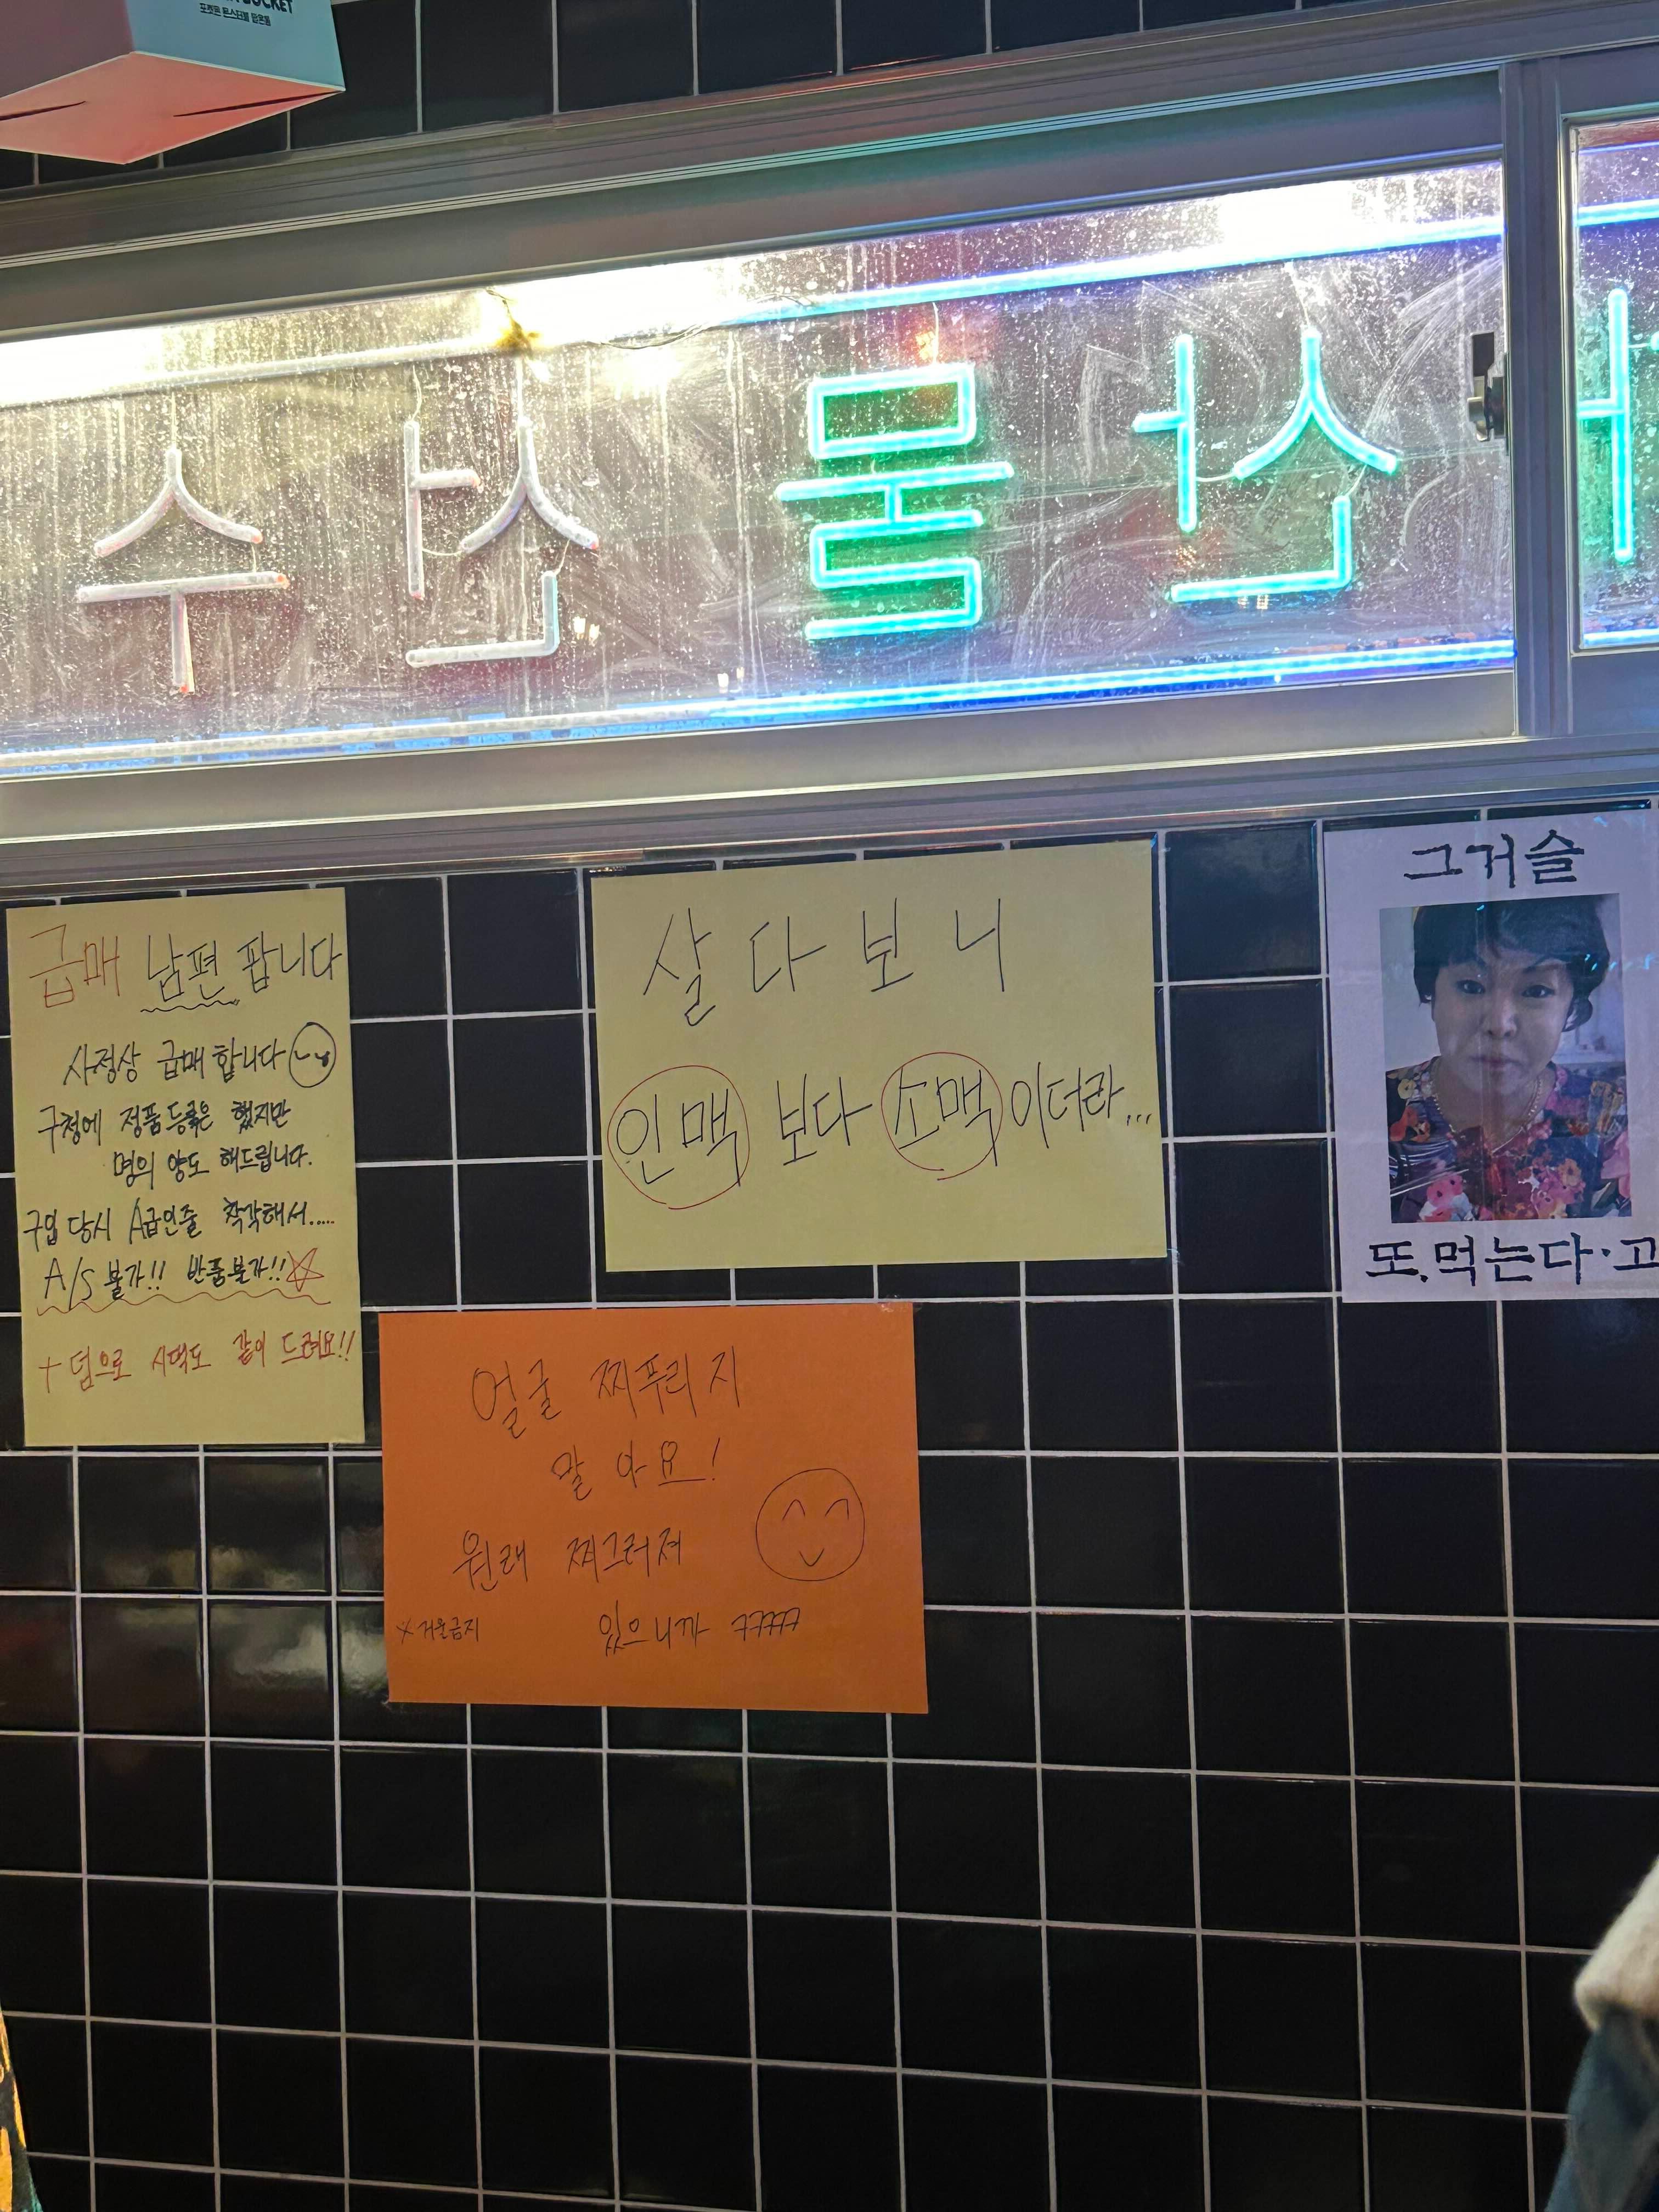 BUCKET
포켓몬 몬스터볼 팝콘통
산물선수
급매 남편 팝니다
사정상 급매 합니다
구청에 정품등록은 했지만
명의 양도 해드립니다.
구입 당시 A급인줄 착각해서.....
A/S 불가!! 반품불가!!☆
+ 덤으로 시댁도 같이 드려요!!
살다보니
인맥 보다 소맥이더라...
그거슬
또.먹는다·고
얼굴 찌푸리지
말아요!
원래 찌그러져
있으니까 ㅋㅋㅋㅋㅋ
※거울금지